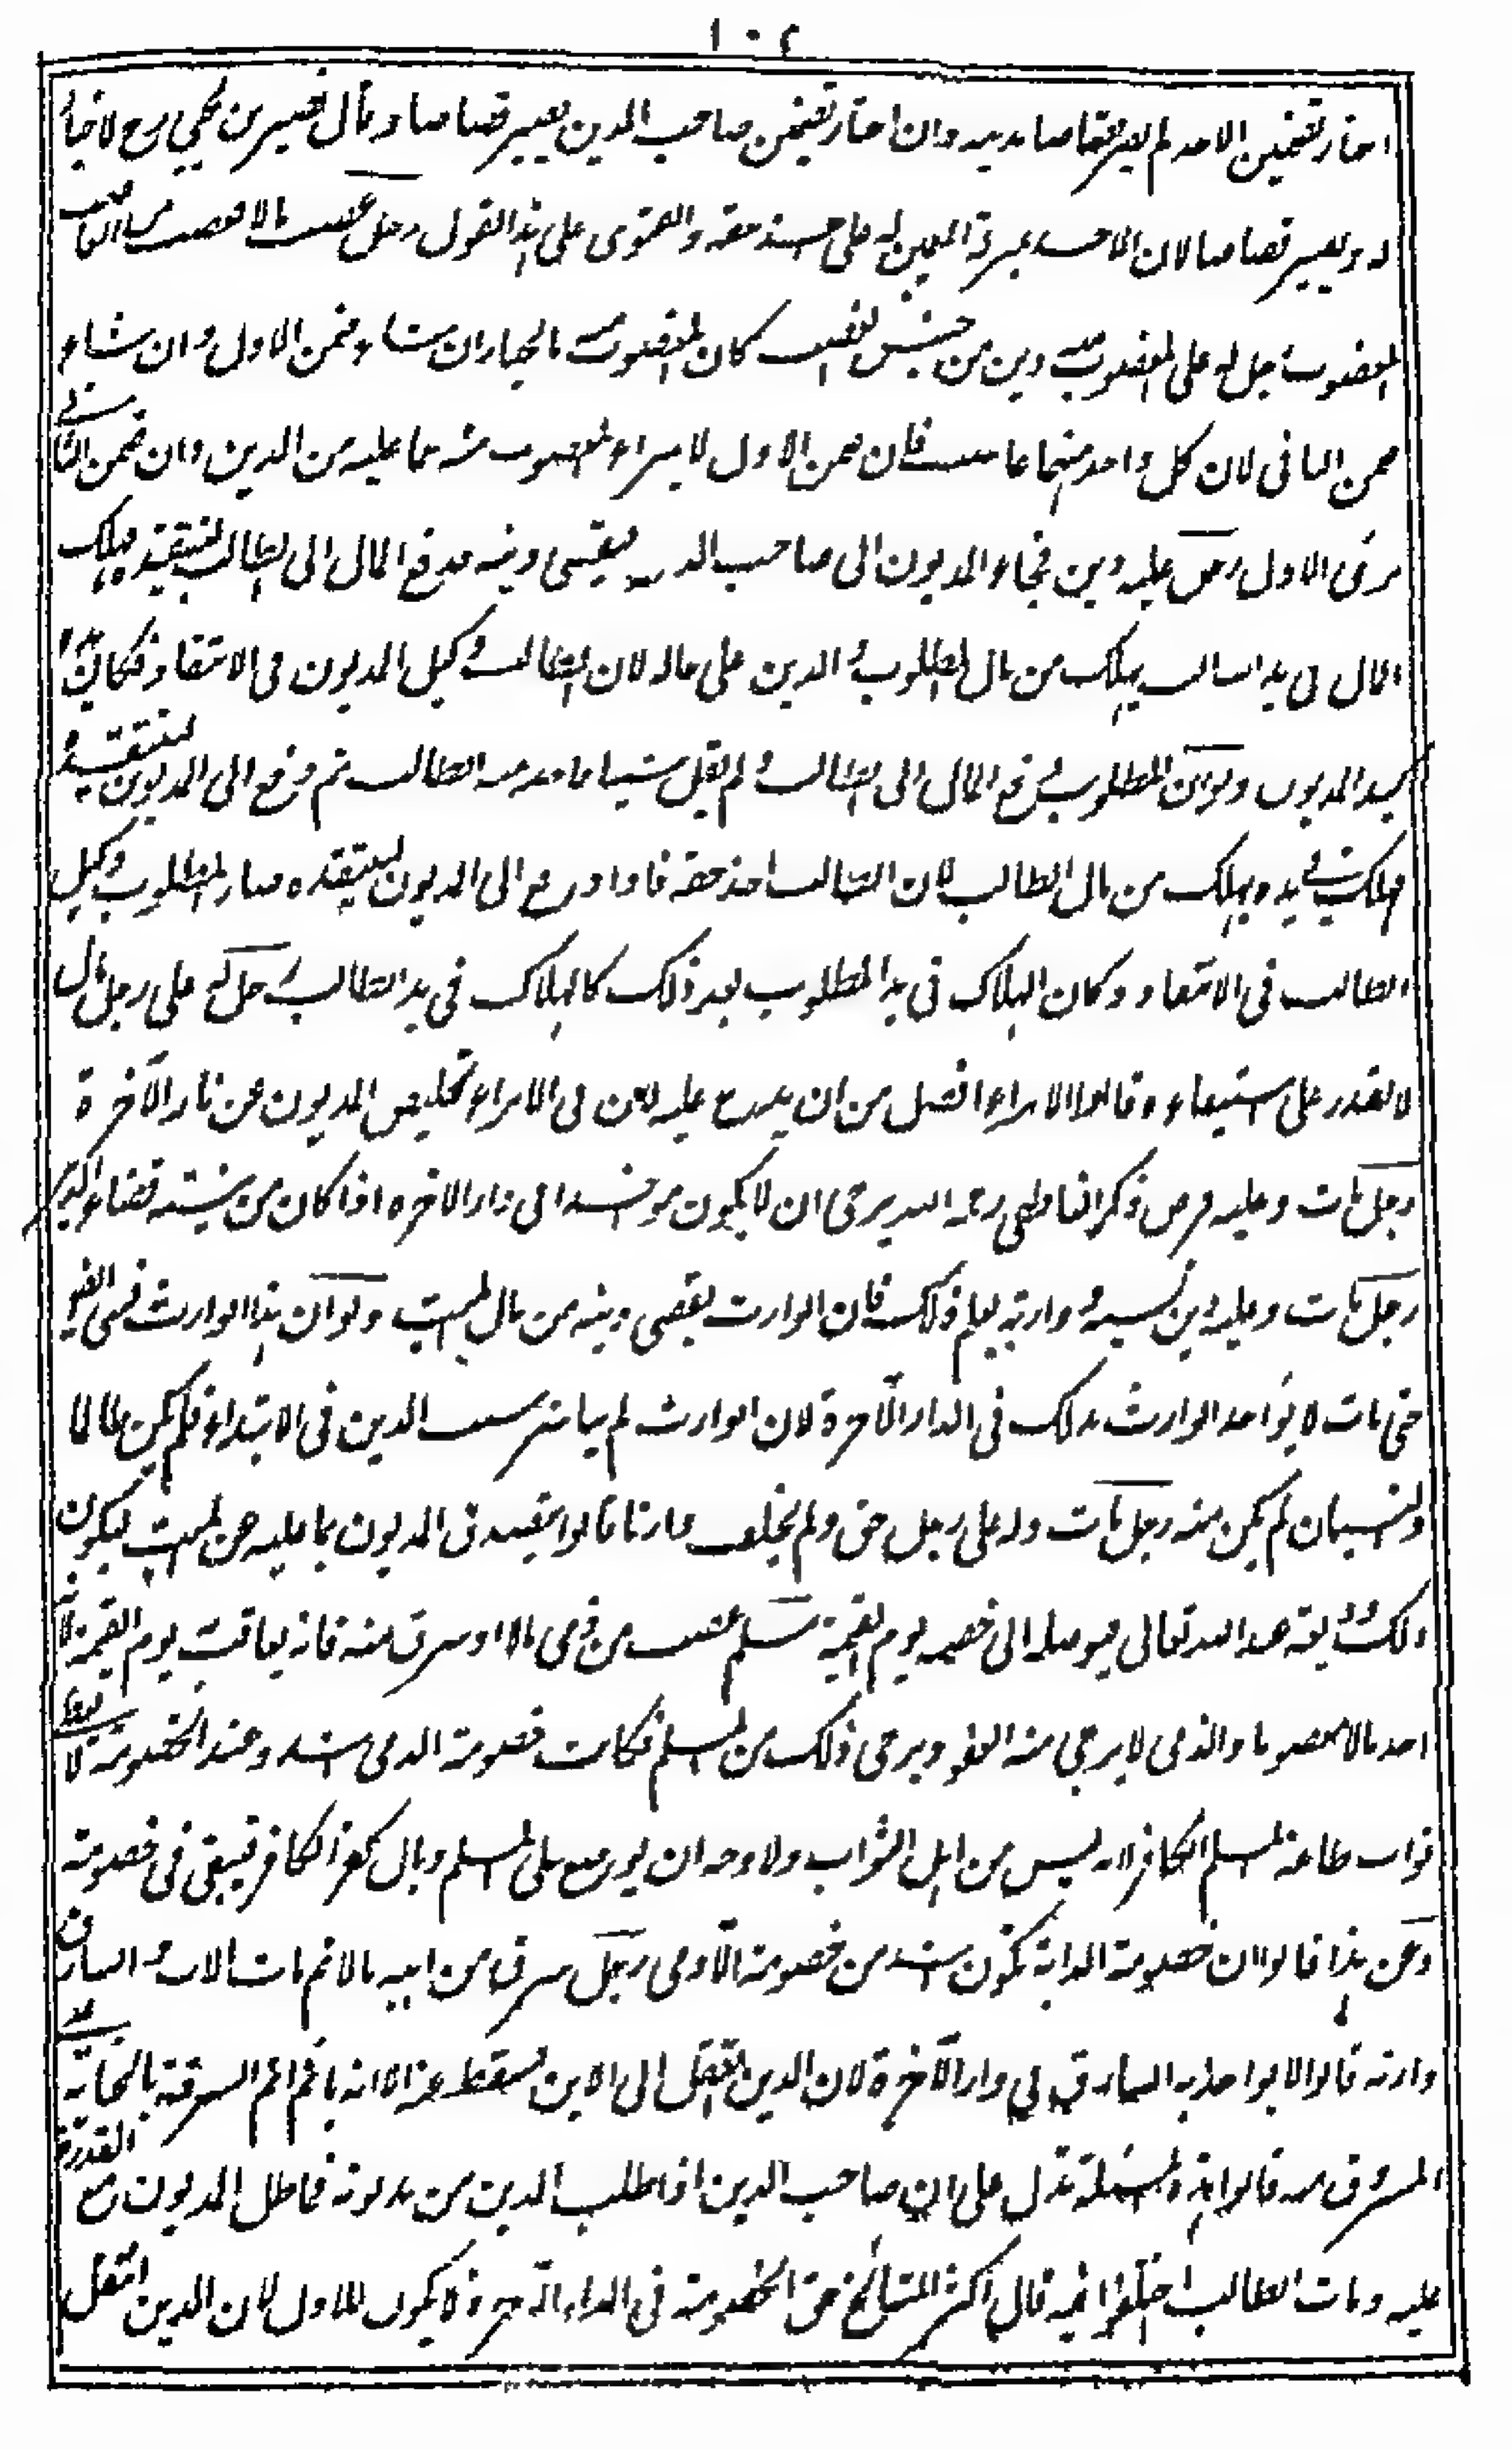 ١٠٢
اختار تضمين الآخذ لم يصر قصاصا بدينه وان اختار تضمين صاحب الدين يصير قصاصا وقال نصير بن يحيى رح لا خيار
له ويصير قصاصا لان الآخذ بمنزلة المعين له على اخذ حقه والفتوى على هذا القول رجل غصب مالا فغصب من الغاصب
المغصوب رجل له على المغصوب منه دين من جنس الغصب كان المغصوب منه بالخيار ان شاء ضمن الاول وان شاء
ضمن الثاني لان كل واحد منهما غاصب فان ضمن الاول لا يبرأ المغصوب منه عما عليه من الدين وان ضمن الثاني
برئ الاول رجل عليه دين فجاء المديون الى صاحب الدين ليقضى دينه فدفع المال الى الطالب لينتقده فهلك
المال في يد الطالب يهلك من مال المطلوب والدين على حاله لان الطالب وكيل المديون في الانتقاد فكان يده
كيد المديون ولو ان المطلوب دفع المال الى الطالب ولم يقل شيئا فاخذه الطالب ثم دفع الى المديون لينتقده
فهلك في يده يهلك من مال الطالب لان الطالب اخذ حقه فاذا دفع الى المديون لينتقده صار المطلوب وكيل
الطالب في الانتقاد وكان الهلاك في يد المطلوب بعد ذلك كالهلاك في يد الطالب رجل له على رجل مال
لا يقدر على استيفاء ه قالوا الابراء افضل من ان يدع عليه لان في الابراء تخليص المديون عن نار الآخرة
رجل مات وعليه قرض ذكر الناطفى رحمه الله يرجى ان لا يكون مؤاخذا في دار الآخرة اذا كان من نيته قضاء الدين
رجل مات وعليه دين نسيه ووارثه يعلم ذلك فان الوارث يقضى دينه من مال الميت ولو ان هذا الوارث نسى ايضا
حتى مات لا يؤاخذ الوارث بذلك في الدار الآخرة لان الوارث لم يباشر سبب الدين في الابتداء فلم يكن ظالما
والنسيان لم يكن منه رجل مات وله على رجل حق ولم يخلف وارثا قالوا يتصدق المديون بما عليه عن الميت ليكون
ذلك وديعة عند الله تعالى فيوصلها الى خصمه يوم القيمة مسلم غصب من ذمى مالا او سرق منه فانه يعاقب يوم القيمة لانه
اخذ مالا معصوما والذمى لا يرجى منه العفو ويرجى ذلك من المسلم فكانت خصومة الذمى اشد وعند الخصومة لا يعطى
ثواب طاعة المسلم الكافر لانه ليس من اهل الثواب ولا وجه ان يوضع على المسلم وبال كفر الكافر فيبقى في خصومته
وعن هذا قالوا ان خصومة الدابة تكون اشد من خصومة الآدمى رجل سرق من ابيه مالا ثم مات الاب والسارق
وارثه قالوا لا يؤاخذ به السارق في دار الآخرة لان الدين انتقل الى الابن فسقط عنه الا انه يأثم اثم السرقة بالجناية على
المسروق منه قالوا هذه المسئلة تدل على ان صاحب الدين اذا طلب الدين من مديونه فماطل المديون مع القدرة
عليه ومات الطالب اختلفوا فيه قال اكثر المشائخ حق الخصومة في الدار الآخرة لا يكون للاول لان الدين انتقل